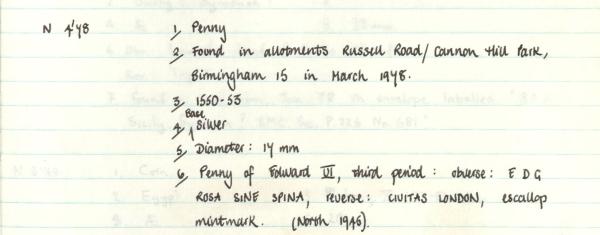 N 4'48 1, Penny
2, Found in allotments Russell Road/Cannon Hill Park,
Birmingham 15 in March 1948.
3, 1550-53
4, Base Silver
5, Diameter: 14 mm
6, Penny of Edward VI, third period: obverse: E D G
ROSA SINE SPINA, reverse: CIVITAS LONDON, escallop
mintmark. (North 1946).